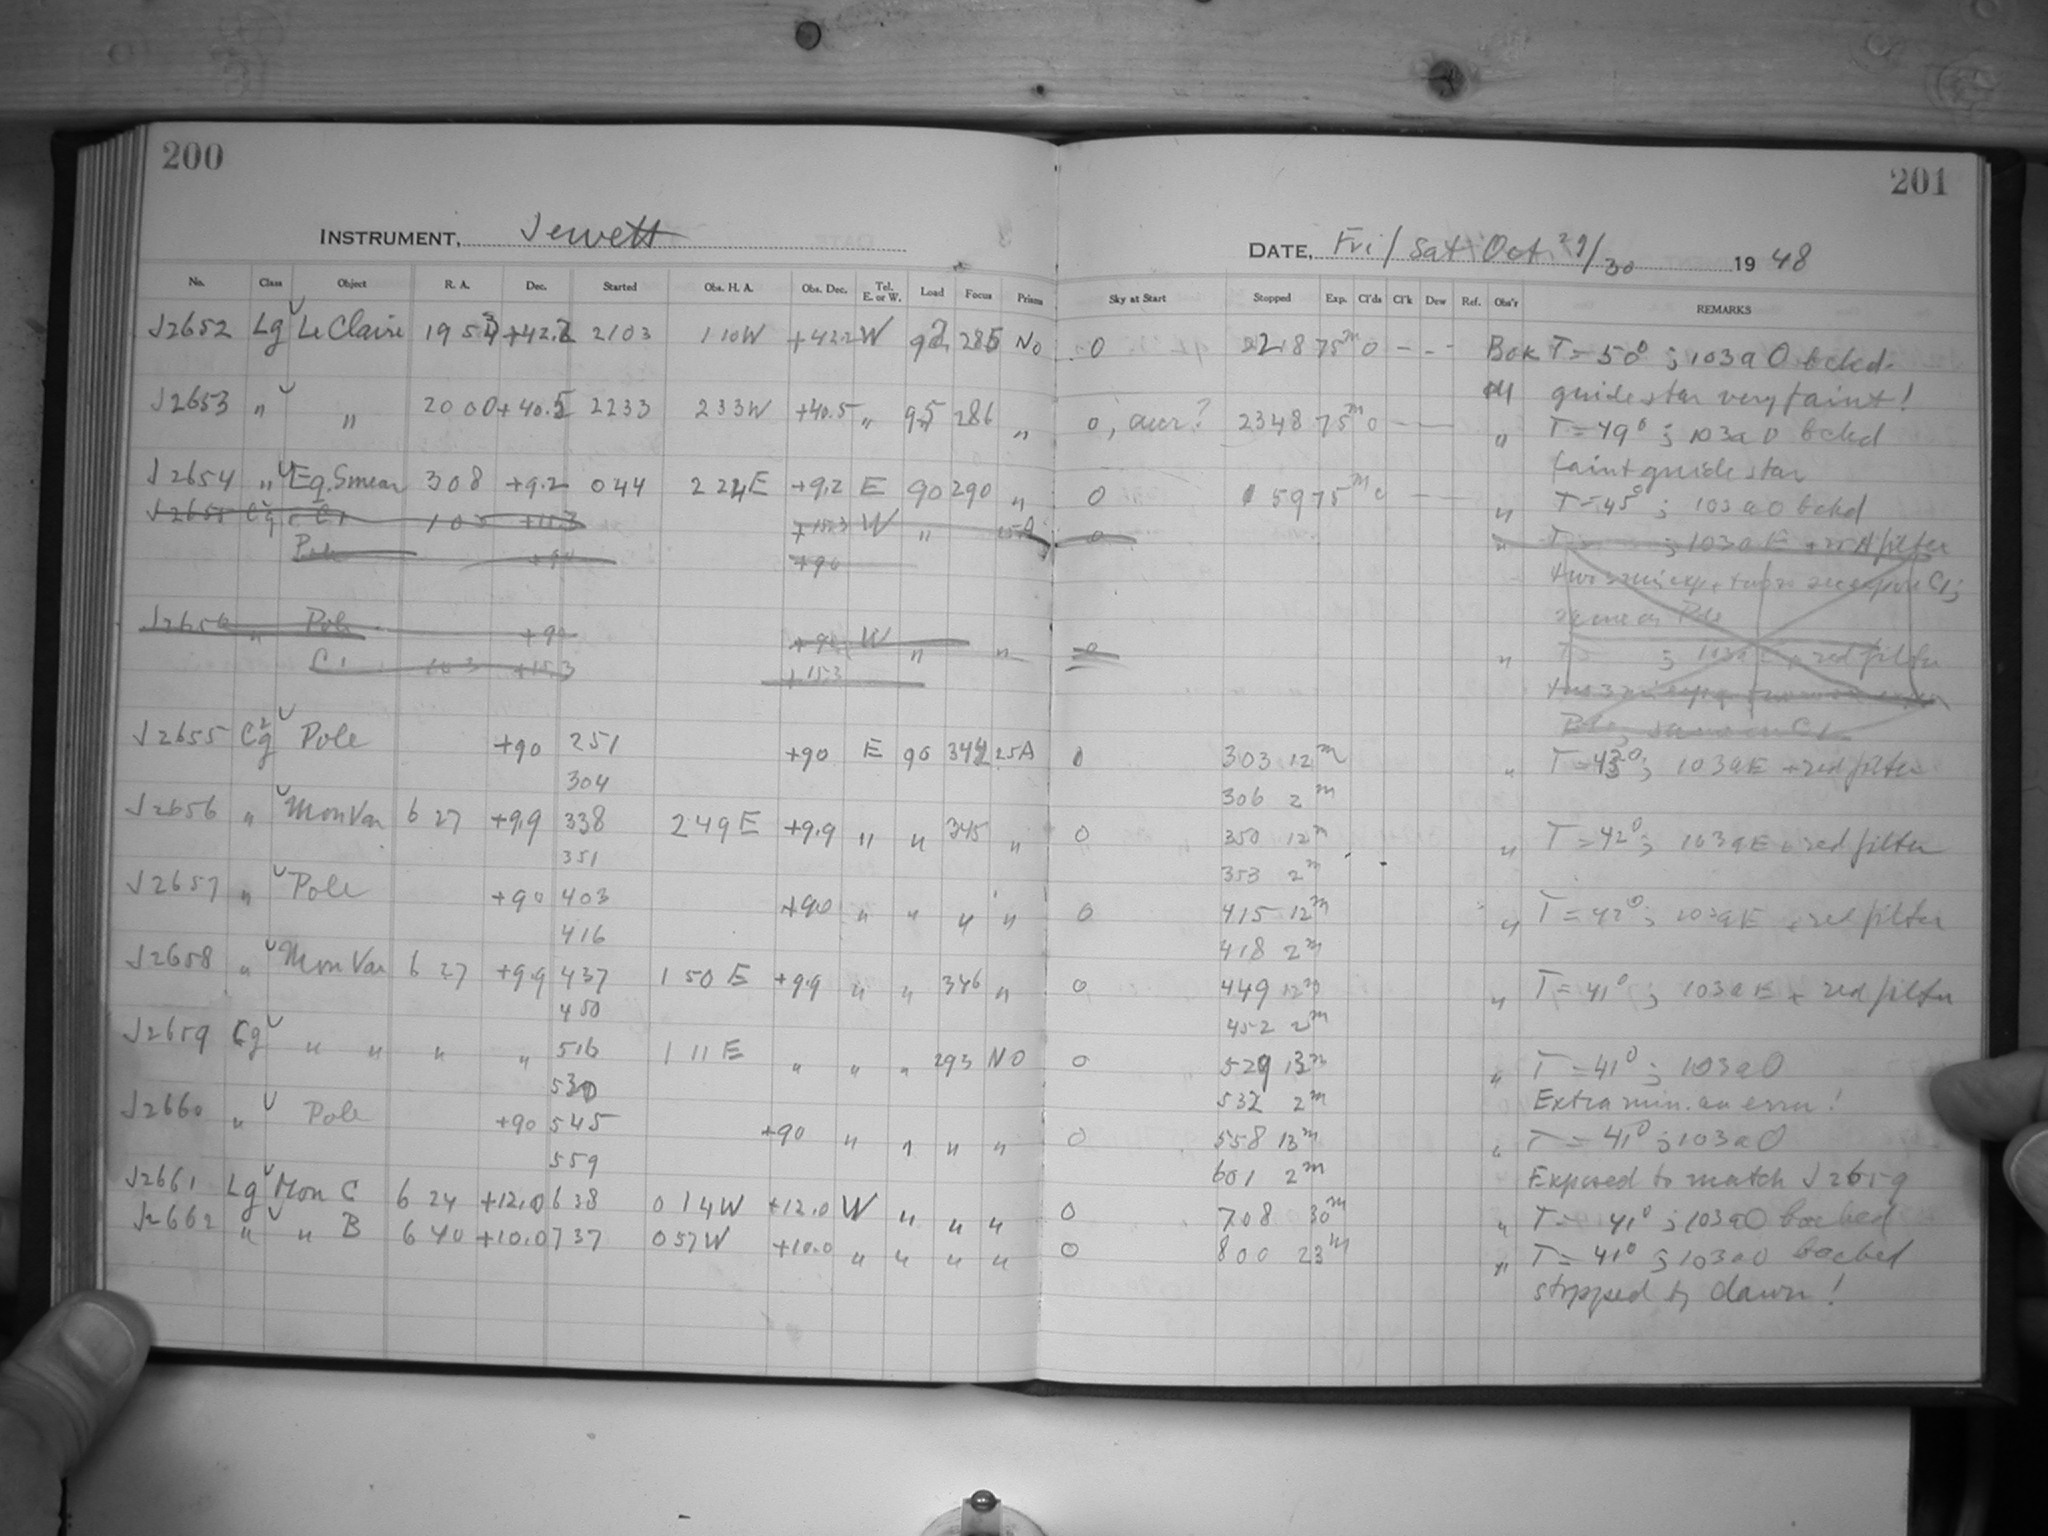 200
201
INSTRUMENT, Jewett
DATE, Fri/Sat Oct 29/30 1948
No. Class Object R. A. Dec. Started Obs. H. A. Obs. Dec. Tel. E. or W. Load Focus Prisms Sky at Start Stopped Exp. Cl'ds Cl'k Dew Ref. Obs'r REMARKS
J2652 Lg LeClaire 19 53 +42.2 2103 1 10W +42.2 W 92 285 No 0 2218 75m 0 - - - Bok T=50° ; 103aO bckd.
guide star very faint!
J2653 " " 20 00 +40.5 2233 2 33W +40.5 " 95 286 " 0, aur? 2348 75m 0 - - " T=49° ; 103aO bckd
faint guide star
J2654 " Eq. Smear 3 08 +9.2 044 2 24E +9.2 E 90 290 " 0 1 59 75m 0 - - " T=45° ; 103aO bckd
J2655 C2g C1 103 +15.3 +15.3 W " 25A 0 " T= ; 103aE + 25A filter
Pole +90 +90
same on Pole
J2656 " Pole +90 +90 W " " 0 " T= ; 103a + red filter
C1 103 +15.3 +15.3
J2655 C2g Pole +90 251 +90 E 90 344 25A 0 303 12m " T=43° ; 103aE + red filter
304 306 2m
J2656 " Mon Var 6 27 +9.9 338 2 49E +9.9 " " 345 " 0 350 12m " T=42° ; 103aE + red filter
351 353 2m
J2657 " Pole +90 403 +90 " " " " 0 415 12m " T=42° ; 103aE + red filter
416 418 2m
J2658 " Mon Var 6 27 +9.9 437 1 50 E +9.9 " " 346 " 0 449 12m " T=41° ; 103aE + red filter
450 452 2m
J2659 Cg " " " " 516 1 11 E " " " 293 NO 0 529 13m " T=41° ; 103aO
530 532 2m Extra min. an error!
J2660 " Pole +90 545 +90 " " " " 0 558 13m " T=41° ; 103aO
559 601 2m Exposed to match J2659
J2661 Lg Mon C 6 24 +12.0 638 0 14W +12.0 W " " " 0 708 30m " T=41° ; 103aO backed
J2662 " " B 6 40 +10.0 737 0 57W +10.0 " " " " 0 800 23m " T=41° ; 103aO backed
stopped by dawn!